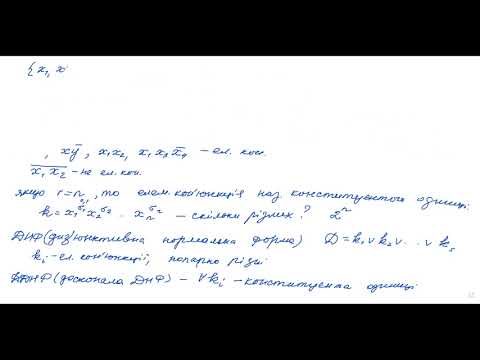 {x₁, x
, xȳ, x₁x₂, x₁x₃x̄₄ – ел. кон.
x̄₁x̄₂ – не ел. кон.
якщо r=n, то елем. кон'юнкція наз. конституентою одиниці
kᵢ = x₁^σ₁ x₂^σ₂ … xₙ^σₙ – скільки різних? 2ⁿ
ДНФ (диз'юнктивна нормальна форма) D = k₁ ∨ k₂ ∨ … ∨ kₛ
kᵢ – ел. кон'юнкції, попарно різні
ДДНФ (досконала ДНФ) – ∀kᵢ – конституента одиниці